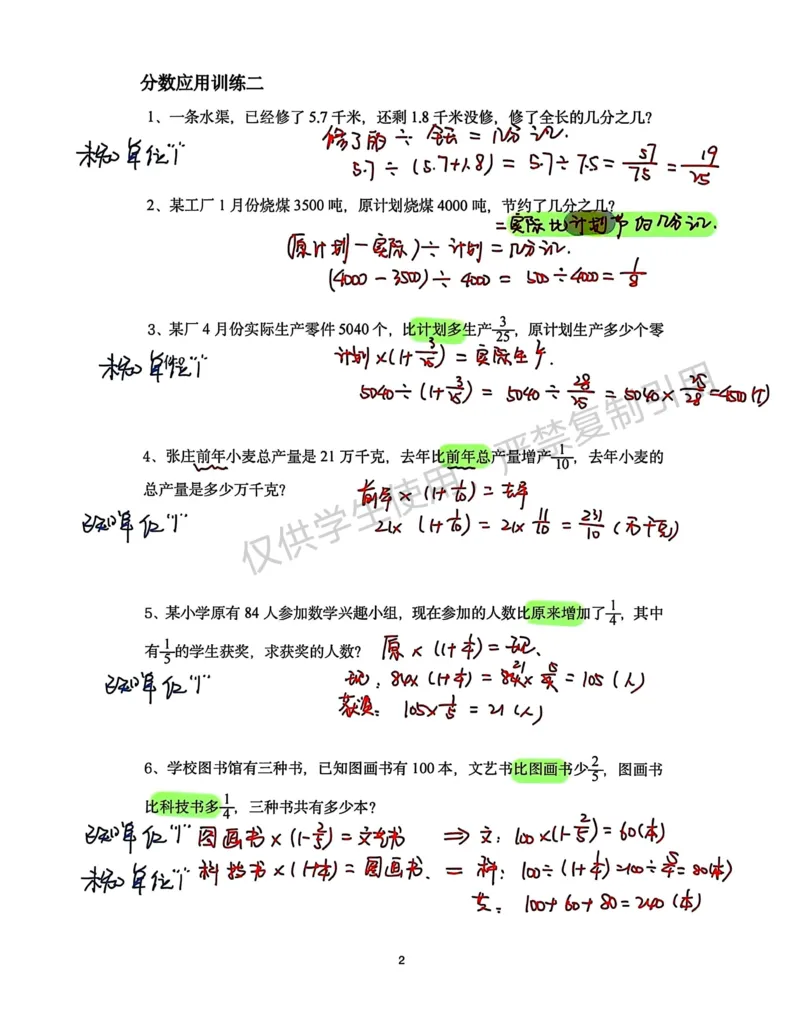 分数应用训练二
1、一条水渠，已经修了 5.7 千米，还剩 1.8 千米没修，修了全长的几分之几？
修了的 ÷ 全长 = 几分之几.
未知单位"1"
5.7 ÷ (5.7+1.8) = 5.7 ÷ 7.5 = 57/75 = 19/25
2、某工厂 1 月份烧煤 3500 吨，原计划烧煤 4000 吨，节约了几分之几？
=实际比计划节约几分之几.
(原计划-实际) ÷ 计划 = 几分之几.
(4000-3500) ÷ 4000 = 500 ÷ 4000 = 1/8
3、某厂 4 月份实际生产零件 5040 个，比计划多生产 3/25，原计划生产多少个零
计划×(1+3/25) = 实际生产.
未知单位"1"
5040 ÷ (1+3/25) = 5040 ÷ 28/25 = 5040 × 25/28 = 4500(个)
4、张庄前年小麦总产量是 21 万千克，去年比前年总产量增产 1/10，去年小麦的
总产量是多少万千克？
前年 × (1+1/10) = 去年
已知单位"1"
21× (1+1/10) = 21× 11/10 = 231/10 (万千克)
仅供学生使用 严禁复制引用
5、某小学原有 84 人参加数学兴趣小组，现在参加的人数比原来增加了 1/4，其中
有 1/5 的学生获奖，求获奖的人数？
原 × (1+1/4) = 现.
已知单位"1"
现: 84× (1+1/4) = 84× 5/4 = 105 (人)
获奖: 105× 1/5 = 21 (人)
6、学校图书馆有三种书，已知图画书有 100 本，文艺书比图画书少 2/5，图画书
比科技书多 1/4，三种书共有多少本？
已知单位"1" 图画书×(1-2/5)=文艺书 ⇒ 文: 100×(1-2/5)=60(本)
未知单位"1" 科技书×(1+1/4)=图画书. = 科: 100÷(1+1/4)=100÷5/4=80(本)
共: 100+60+80=240(本)
2